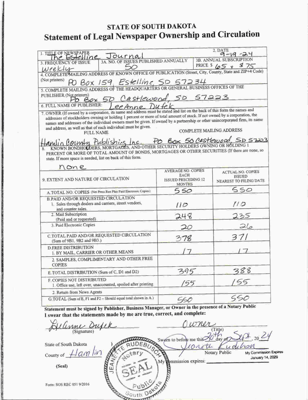 STATE OF SOUTH DAKOTA
Statement of Legal Newspaper Ownership and Circulation
1. TITLE OF NEWSPAPER
The Estelline Journal
2. DATE
9-19-24
3. FREQUENCY OF ISSUE
Weekly
3A. NO. OF ISSUES PUBLISHED ANNUALLY
50
3B. ANNUAL SUBSCRIPTION
PRICE $
4. COMPLETE MAILING ADDRESS OF KNOWN OFFICE OF PUBLICATION (Street, City, County, State and ZIP+4 Code)
(Not printers)
PO Box 159 Estelline SD 57234
5. COMPLETE MAILING ADDRESS OF THE HEADQUARTERS OR GENERAL BUSINESS OFFICES OF THE
PUBLISHER (Not printers)
PO Box 50 Castlewood, SD 57223
6. FULL NAME OF PUBLISHER:
7. OWNER (If owned by a corporation, its name and address must be stated and also
addresses of stockholders owning or holding 1 percent or more of total amount of stock. If not owned by a corporation, the
names and addresses of the individual owners must be given. If owned by a partnership or other unincorporated firm, its name
and address, as well as that of each individual must be given.
FULL NAME
COMPLETE MAILING ADDRESS
Hamlin County Publishing Inc. PO Box 50 Castlewood SD 57223
8. KNOWN BONDHOLDERS, MORTGAGES, AND OTHER SECURITY HOLDERS OWNING OR HOLDING 1
PERCENT OR MORE OF TOTAL AMOUNT OF BONDS, MORTGAGES OR OTHER SECURITIES (If there are none, so
state. If more space is needed, list on back of this form.
none
9. EXTENT AND NATURE OF CIRCULATION
AVERAGE NO. COPIES
EACH
ISSUED PRECEDING 12
MONTHS
ACTUAL NO. COPIES
ISSUED
NEAREST TO FILING DATE
A. TOTAL NO. COPIES
550 550
B. PAID AND/OR REQUESTED CIRCULATION
1. Sales through dealers and carriers, street vendors,
and counter sales.
110 110
2. Mail Subscription
(Paid and or requested)
248 235
3. Paid Electronic Copies
20 26
C. TOTAL PAID AND/OR REQUESTED CIRCULATION
(Sum of 9B1, 9B2 and 9B3.)
378 371
D. FREE DISTRIBUTION
1. BY MAIL, CARRIER OR OTHER MEANS
17 17
2. SAMPLE, COMPLIMENTARY AND OTHER FREE
COPIES
E. TOTAL DISTRIBUTION (Sum of C, D1 and D2)
395 388
F. COPIES NOT DISTRIBUTED
1. Office use, left over, unaccounted, spoiled after printing
155 155
2. Return from News Agents
G. TOTAL (Sum of E, F1 and F2 – Should equal total shown in A.)
550 550
Statement must be signed by Publisher, Business Manager, or Owner in the presence of a Notary Public
I swear that the statements made by me are true, correct, and complete:
(Signature)
Owner
(Title)
State of South Dakota
County of Hamlin
(Seal)
JEANETTE RUDEBUSCH
Notary
SEAL
Public
SOUTH DAKOTA
Notary Public
My commission expires:
My Commission Expires